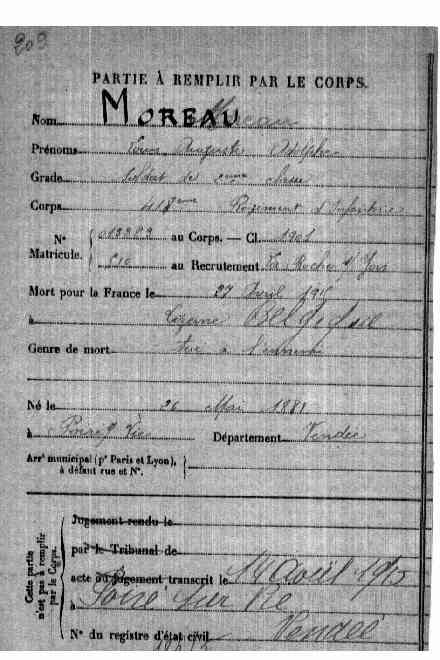 209
PARTIE À REMPLIR PAR LE CORPS.
Nom MOREAU Moreau
Prénoms Louis Auguste Adolphe
Grade Soldat de 2ème classe
Corps 418ème Régiment d'Infanterie
N° Matricule. 013389 au Corps. — Cl. 1901
au Recrutement La Roche s/ Yon
Mort pour la France le 27 Avril 1915
à Lizerne Belgique
Genre de mort tué à l'ennemi
Né le 26 Mai 1881
à Poiré s/ Vie Département Vendée
Arrt municipal (pr Paris et Lyon), à défaut rue et N°.
Cette partie n'est pas à remplir par le Corps.
Jugement rendu le
par le Tribunal de
acte ou jugement transcrit le 14 Août 1915
à Poiré sur Vie
Vendée
N° du registre d'état civil